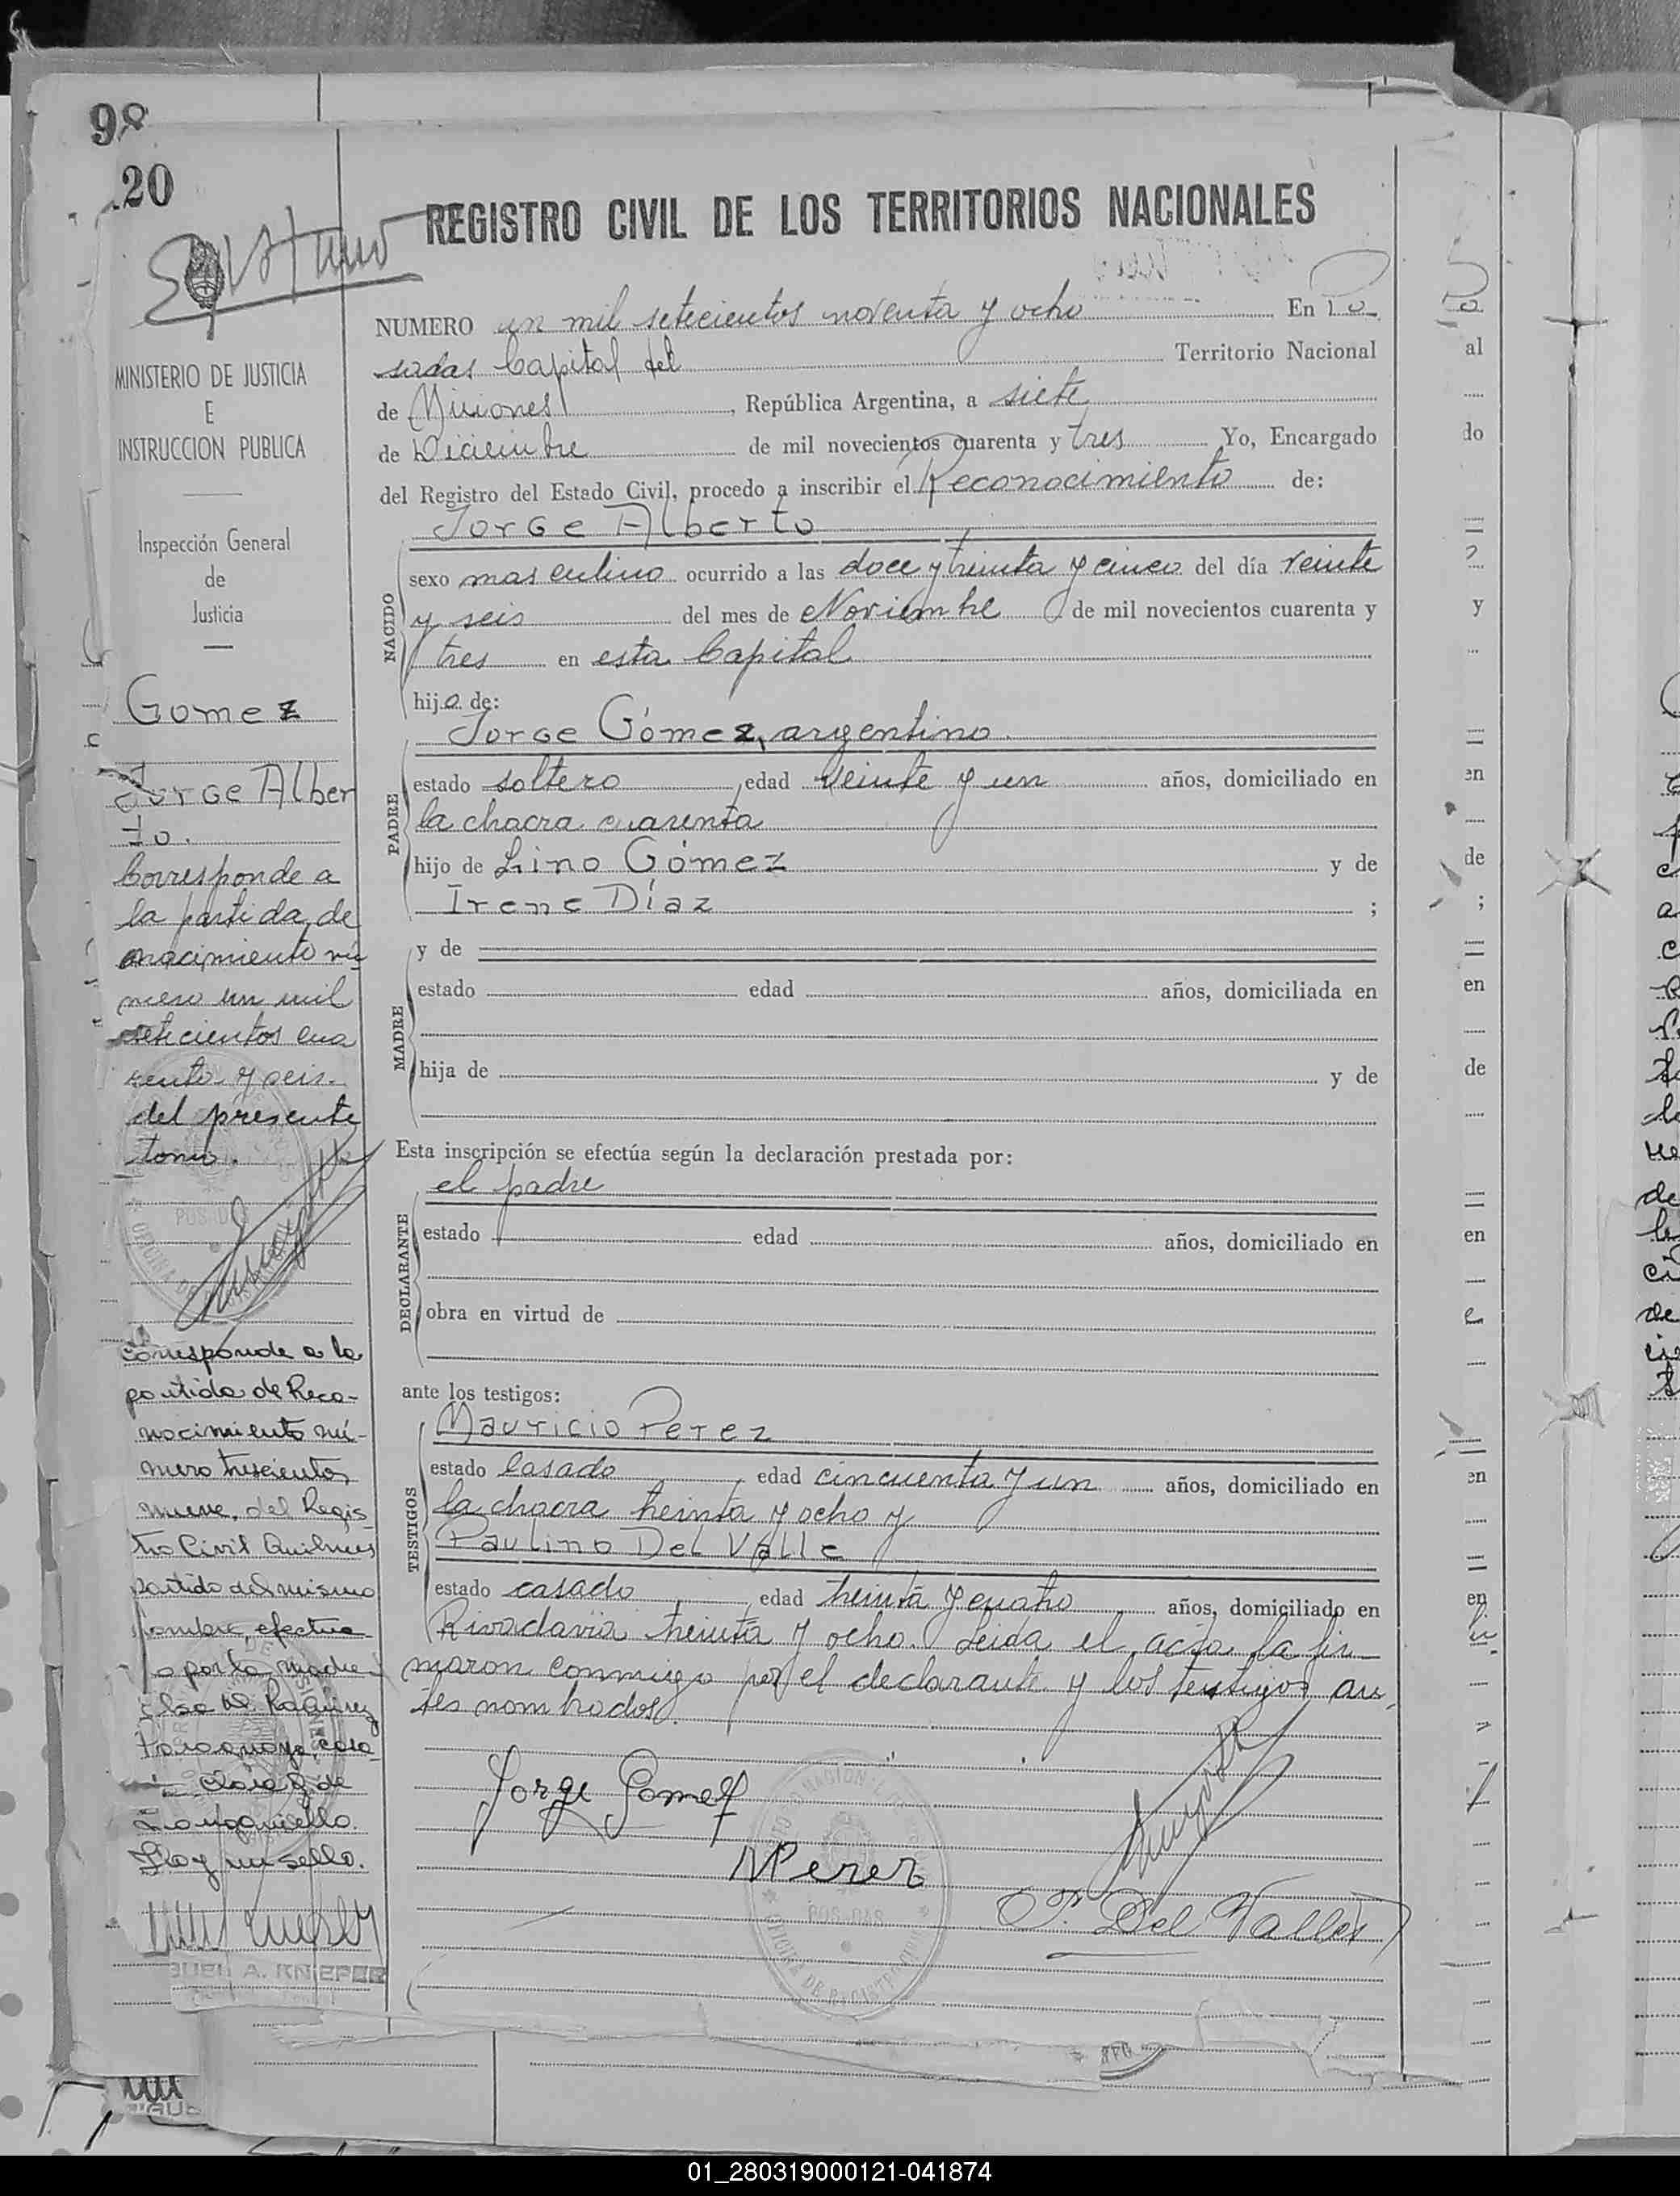 98
20
REGISTRO CIVIL DE LOS TERRITORIOS NACIONALES
NUMERO un mil setecientos noventa y ocho En Po
sadas Capital del Territorio Nacional
de Misiones, República Argentina, a siete
de Diciembre de mil novecientos cuarenta y tres Yo, Encargado
del Registro del Estado Civil, procedo a inscribir el Reconocimiento de:
Jorge Alberto
NACIDO
sexo masculino ocurrido a las doce y treinta y cinco del día veinte
y seis del mes de Noviembre de mil novecientos cuarenta y
tres en esta Capital
hijo de:
Jorge Gómez, argentino.
PADRE
estado soltero, edad veinte y un años, domiciliado en
la chacra cuarenta
hijo de Lino Gómez y de
Irene Díaz ;
MADRE
y de
estado edad años, domiciliada en
hija de y de
Esta inscripción se efectúa según la declaración prestada por:
el padre
DECLARANTE
estado edad años, domiciliado en
obra en virtud de
ante los testigos:
Mauricio Perez
TESTIGOS
estado Casado, edad cincuenta y un años, domiciliado en
la chacra treinta y ocho y
Paulino Del Valle
estado casado, edad treinta y cuatro años, domiciliado en
Rivadavia treinta y ocho. Leida el acta la fir
maron conmigo el declarante y los testigos an
tes nombrados.
Jorge Gomez
MPerez
P. Del Valle
POSADAS
OFICINA DE REGISTRO
MINISTERIO DE JUSTICIA
E
INSTRUCCION PUBLICA
Inspección General
de
Justicia
Gomez
Jorge Alber
to.
Corresponde a
la partida de
nacimiento nú
mero un mil
setecientos cua
renta y seis.
del presente
tomo.
Corresponde a la
partida de Reco-
nocimiento nú-
mero trescientos
nueve, del Regis
tro Civil Quilmes
partido del mismo
nombre, efectua
o por la madre
Ramirez
Paraguaya, casa
de
Hay un sello.
A. KNIEPER
al
do
y
en
de
;
en
de
en
en
en
01_280319000121-041874